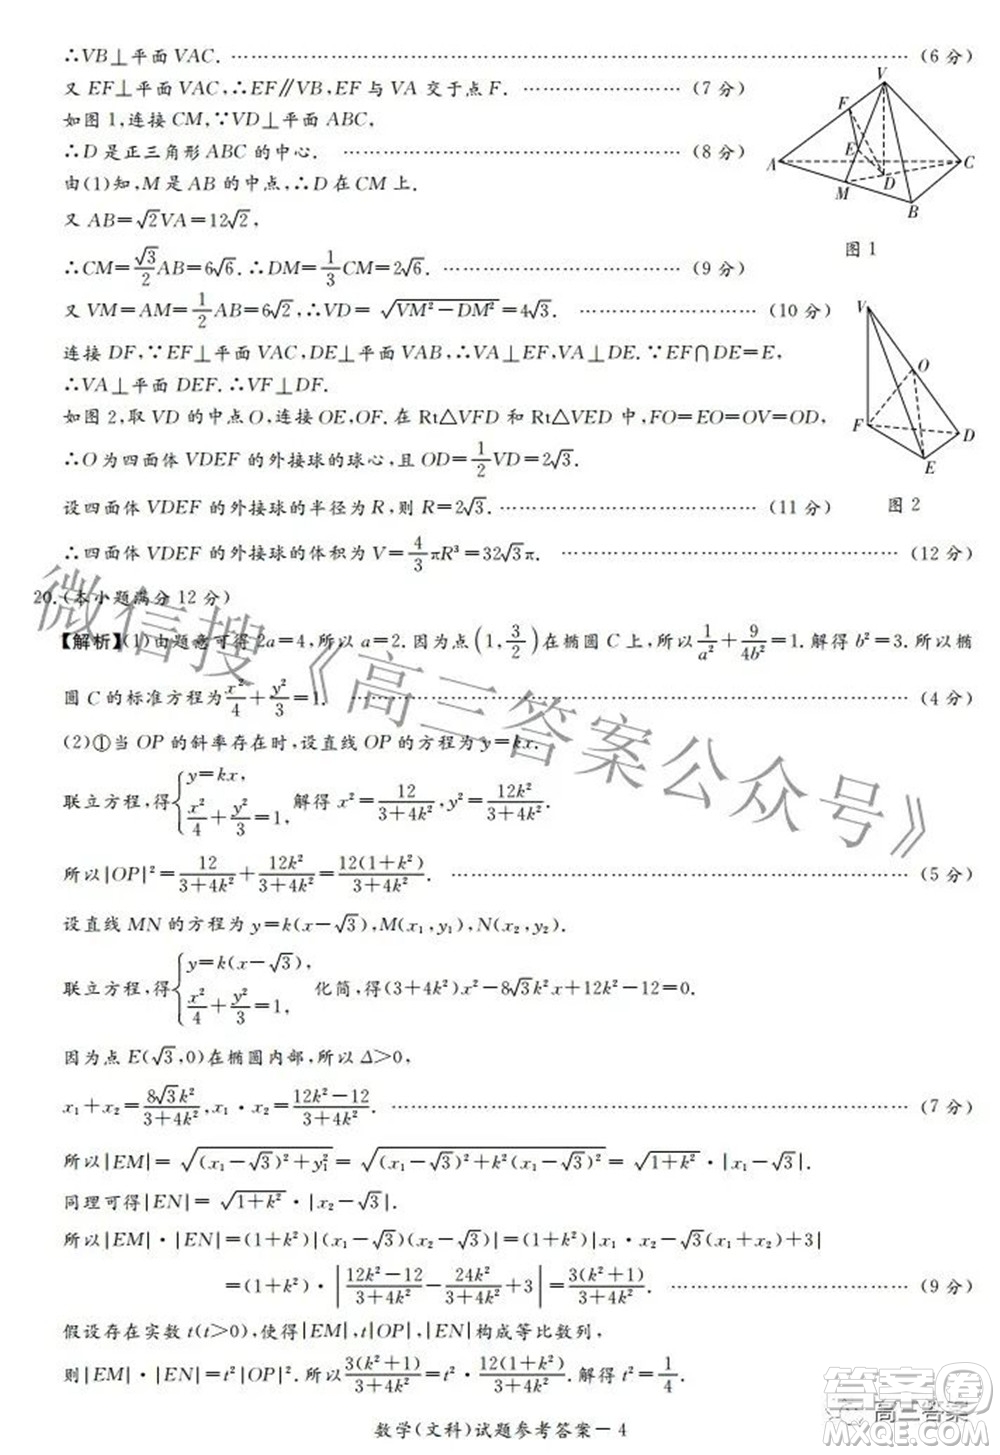 ∴VB⊥平面 VAC. ……………………(6 分)
又 EF⊥平面 VAC,∴EF∥VB,EF 与 VA 交于点 F. ……………………(7 分)
如图 1,连接 CM,∵VD⊥平面 ABC,
∴D 是正三角形 ABC 的中心. ……………………(8 分)
由(1)知,M 是 AB 的中点,∴D 在 CM 上.
又 AB=√2VA=12√2,
∴CM=√3/2 AB=6√6. ∴DM=1/3 CM=2√6. ……………………(9 分)
又 VM=AM=1/2 AB=6√2,∴VD=√(VM²-DM²)=4√3. ……………………(10 分)
连接 DF,∵EF⊥平面 VAC,DE⊥平面 VAB,∴VA⊥EF,VA⊥DE. ∵EF∩DE=E,
∴VA⊥平面 DEF. ∴VF⊥DF.
如图 2,取 VD 的中点 O,连接 OE,OF. 在 Rt△VFD 和 Rt△VED 中,FO=EO=OV=OD,
∴O 为四面体 VDEF 的外接球的球心,且 OD=1/2 VD=2√3.
设四面体 VDEF 的外接球的半径为 R,则 R=2√3. ……………………(11 分)
∴四面体 VDEF 的外接球的体积为 V=4/3 πR³=32√3π. ……………………(12 分)
V
F
E
A
C
D
M
B
图 1
V
O
F
D
E
图 2
20.(本小题满分 12 分)
【解析】(1)由题意可得 2a=4,所以 a=2. 因为点(1,3/2)在椭圆 C 上,所以 1/a²+9/4b²=1. 解得 b²=3. 所以椭
圆 C 的标准方程为 x²/4+y²/3=1. ……………………(4 分)
(2)①当 OP 的斜率存在时,设直线 OP 的方程为 y=kx.
联立方程,得{y=kx, x²/4+y²/3=1. 解得 x²=12/(3+4k²),y²=12k²/(3+4k²).
所以|OP|²=12/(3+4k²)+12k²/(3+4k²)=12(1+k²)/(3+4k²). ……………………(5 分)
设直线 MN 的方程为 y=k(x-√3),M(x₁,y₁),N(x₂,y₂).
联立方程,得{y=k(x-√3), x²/4+y²/3=1. 化简,得(3+4k²)x²-8√3k²x+12k²-12=0.
因为点 E(√3,0)在椭圆内部,所以 Δ>0,
x₁+x₂=8√3k²/(3+4k²),x₁·x₂=(12k²-12)/(3+4k²). ……………………(7 分)
所以|EM|=√((x₁-√3)²+y₁²)=√((x₁-√3)²+k²(x₁-√3)²)=√(1+k²)·|x₁-√3|.
同理可得|EN|=√(1+k²)·|x₂-√3|.
所以|EM|·|EN|=(1+k²)|(x₁-√3)(x₂-√3)|=(1+k²)|x₁x₂-√3(x₁+x₂)+3|
=(1+k²)·|(12k²-12)/(3+4k²)-24k²/(3+4k²)+3|=3(k²+1)/(3+4k²). ……………………(9 分)
假设存在实数 t(t>0),使得|EM|,t|OP|,|EN|构成等比数列,
则|EM|·|EN|=t²|OP|². 所以 3(k²+1)/(3+4k²)=t²·12(1+k²)/(3+4k²). 解得 t²=1/4.
数学(文科)试题参考答案－4
微信搜《高三答案公众号》
答案圈
高三答案